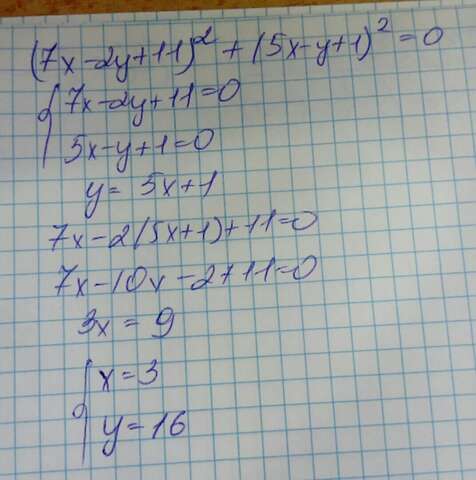 (7x-2y+11)² + (5x-y+1)² = 0
{7x-2y+11=0
5x-y+1=0
y= 5x+1
7x-2(5x+1)+11=0
7x-10x-2+11=0
3x = 9
{x=3
y=16